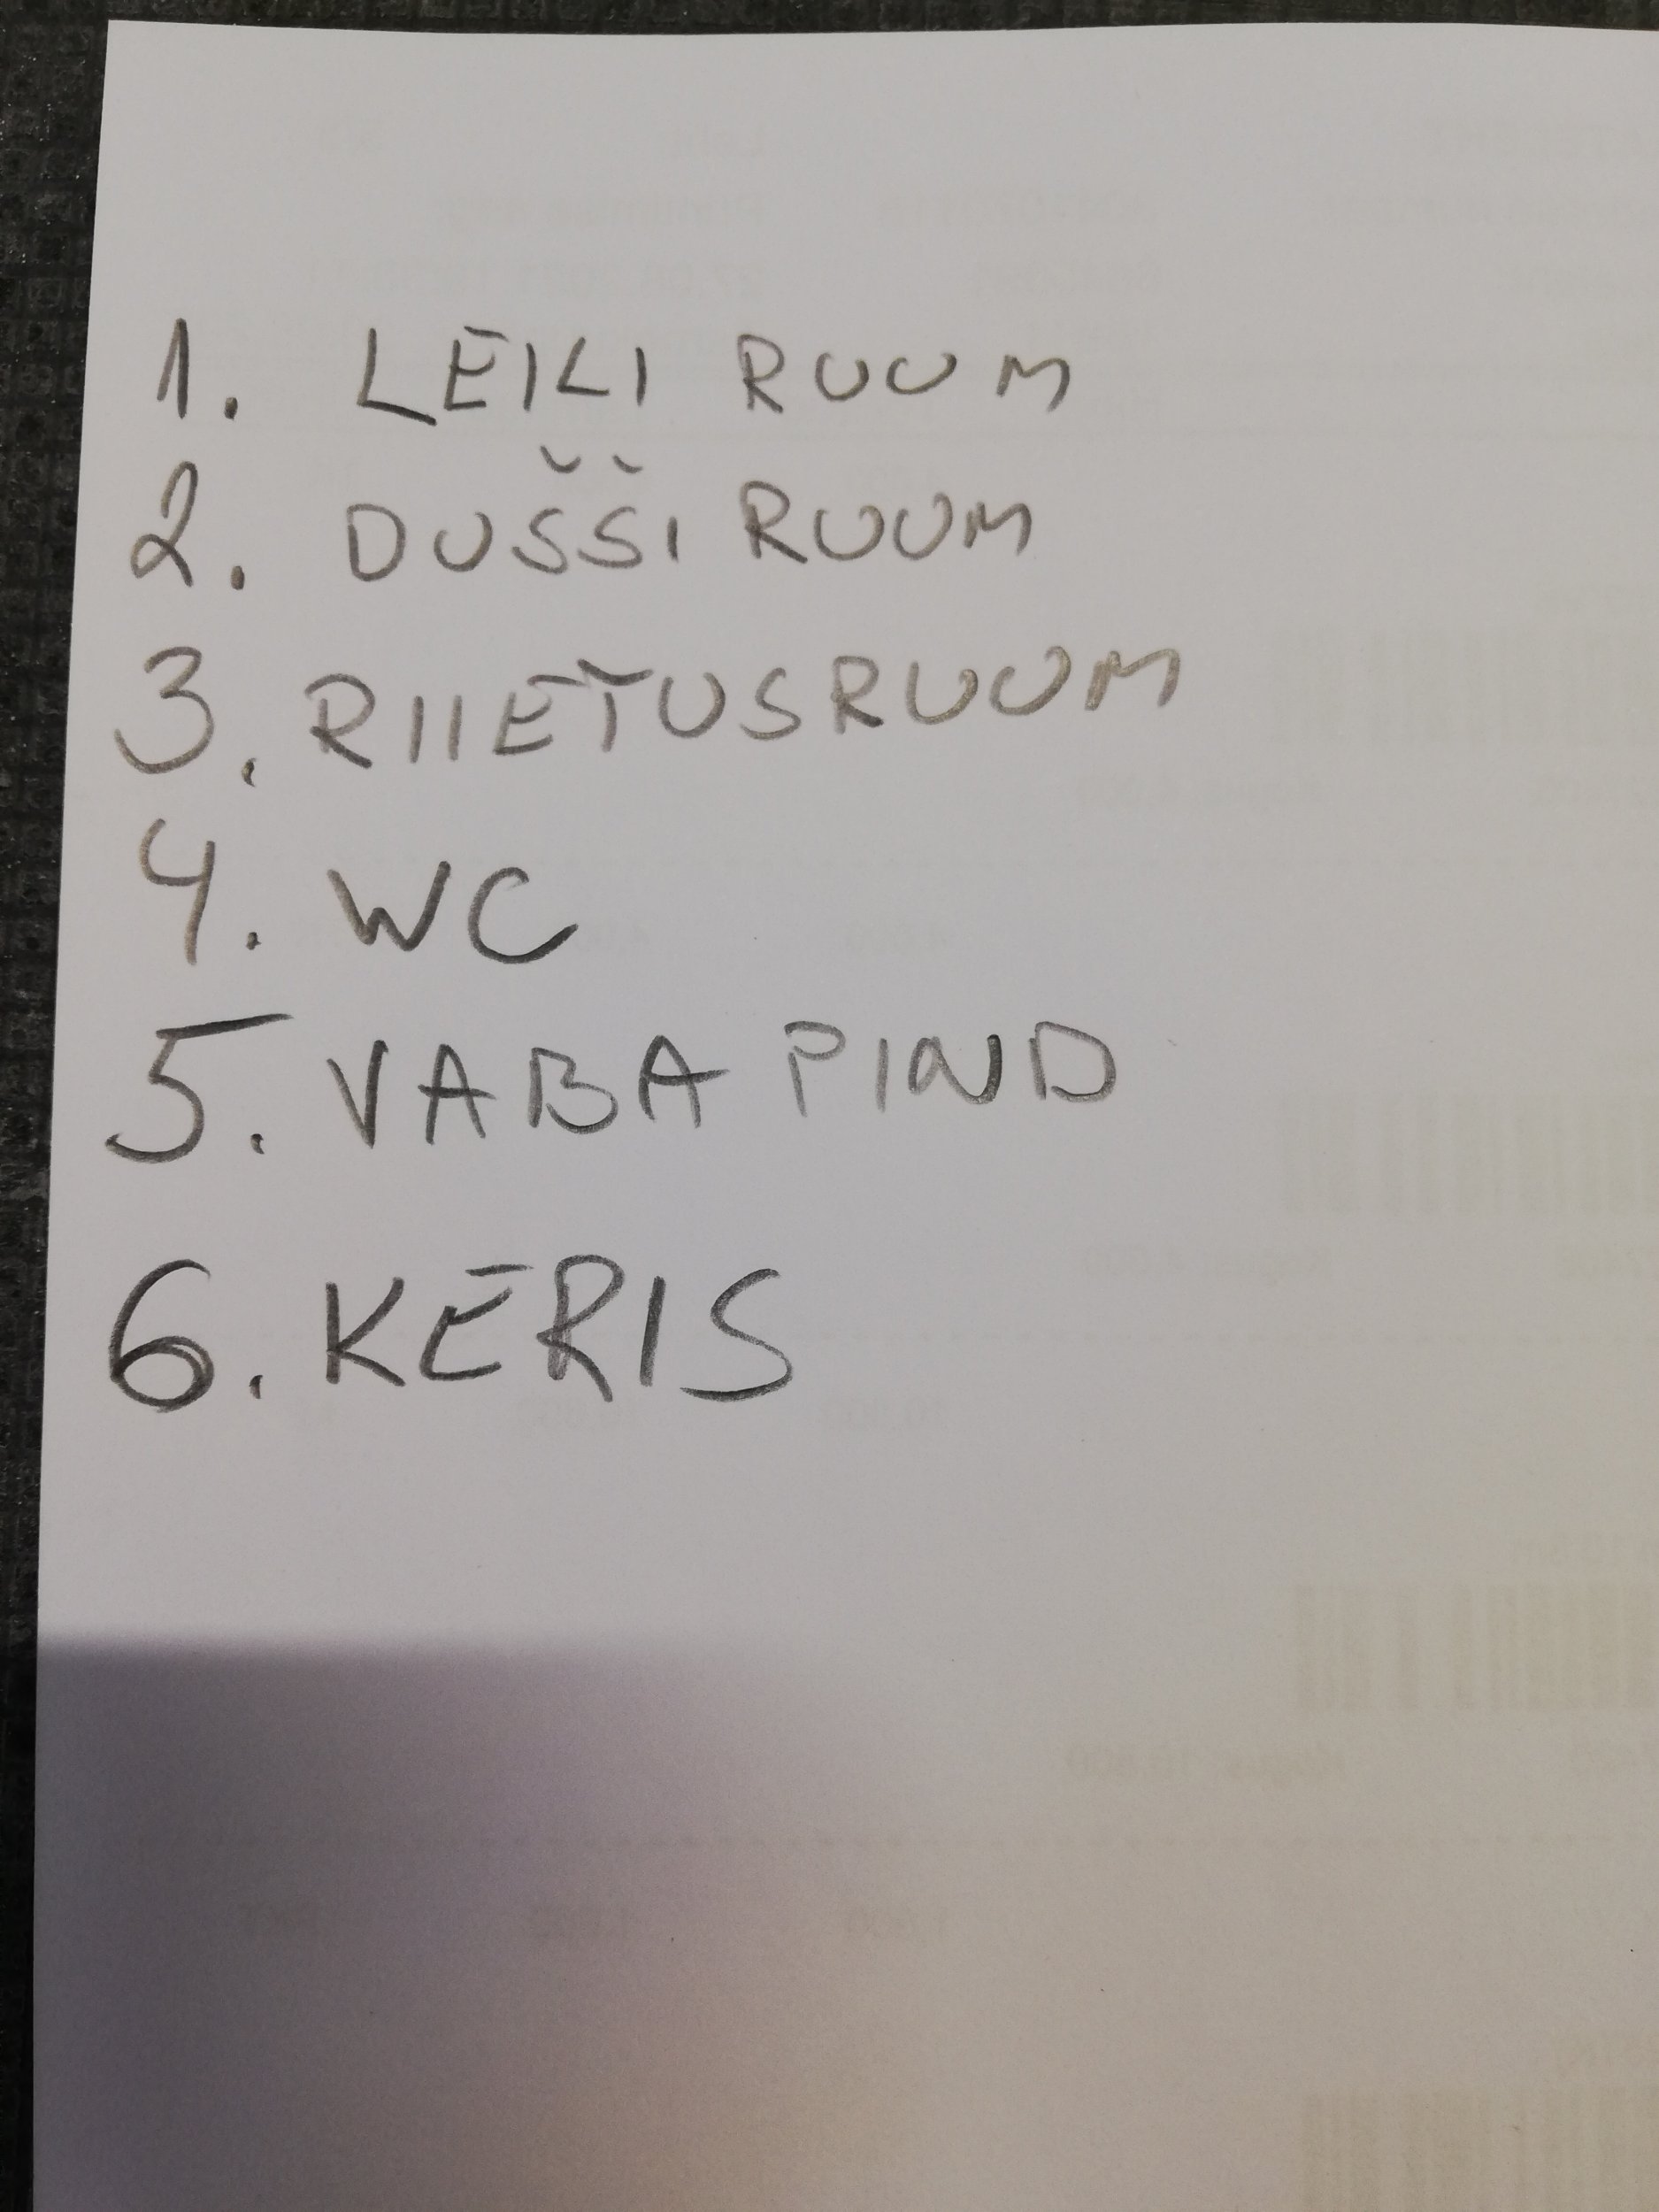 1. LEILI RUUM
2. DUŠŠI RUUM
3. RIIETUSRUUM
4. WC
5. VABA PIND
6. KERIS